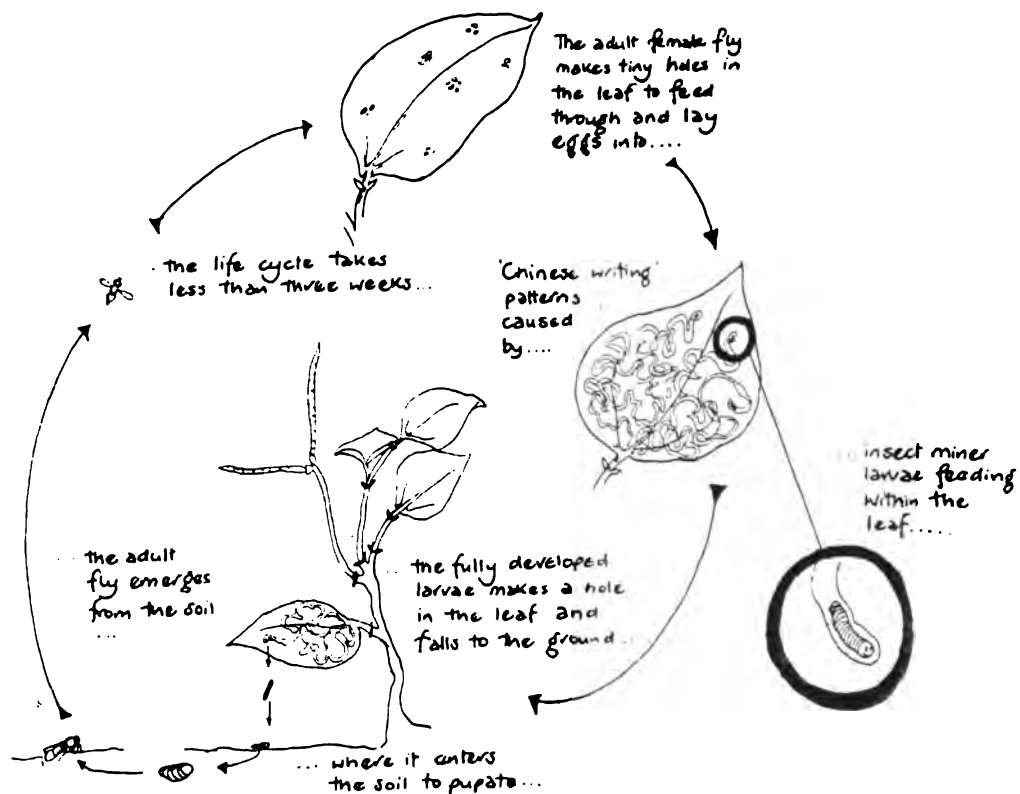 The adult female fly
makes tiny holes in
the leaf to feed
through and lay
eggs into....
'Chinese writing'
patterns
caused
by....
insect miner
larvae feeding
within the
leaf.....
... the fully developed
larvae makes a hole
in the leaf and
falls to the ground...
... where it enters
the soil to pupate...
... the adult
fly emerges
from the soil
...
. the life cycle takes
less than three weeks...